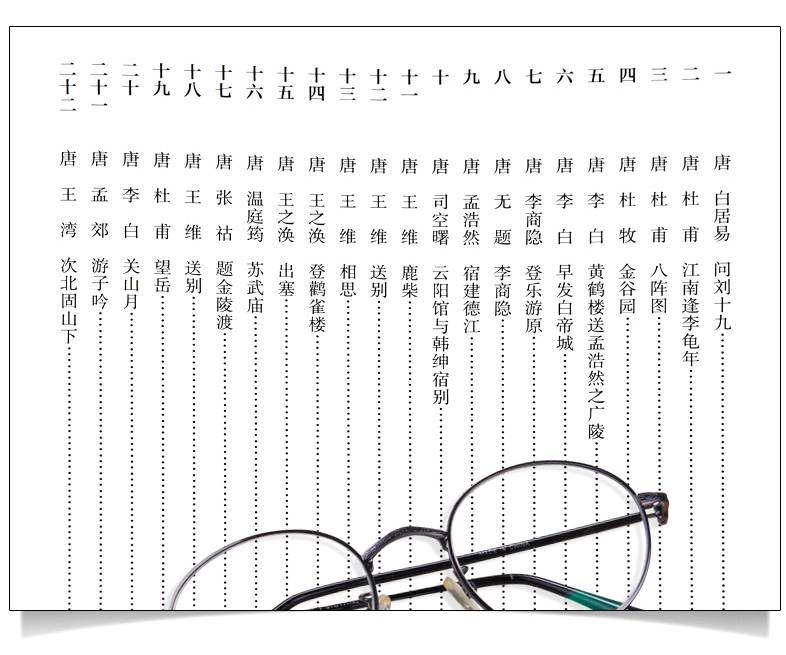 一 唐 白居易 问刘十九
二 唐 杜甫 江南逢李龟年
三 唐 杜甫 八阵图
四 唐 杜牧 金谷园
五 唐 李白 黄鹤楼送孟浩然之广陵
六 唐 李白 早发白帝城
七 唐 李商隐 登乐游原
八 唐 无题 李商隐
九 唐 孟浩然 宿建德江
十 唐 司空曙 云阳馆与韩绅宿别
十一 唐 王维 鹿柴
十二 唐 王维 送别
十三 唐 王维 相思
十四 唐 王之涣 登鹳雀楼
十五 唐 王之涣 出塞
十六 唐 温庭筠 苏武庙
十七 唐 张祜 题金陵渡
十八 唐 王维 送别
十九 唐 杜甫 望岳
二十 唐 李白 关山月
二十一 唐 孟郊 游子吟
二十二 唐 王湾 次北固山下